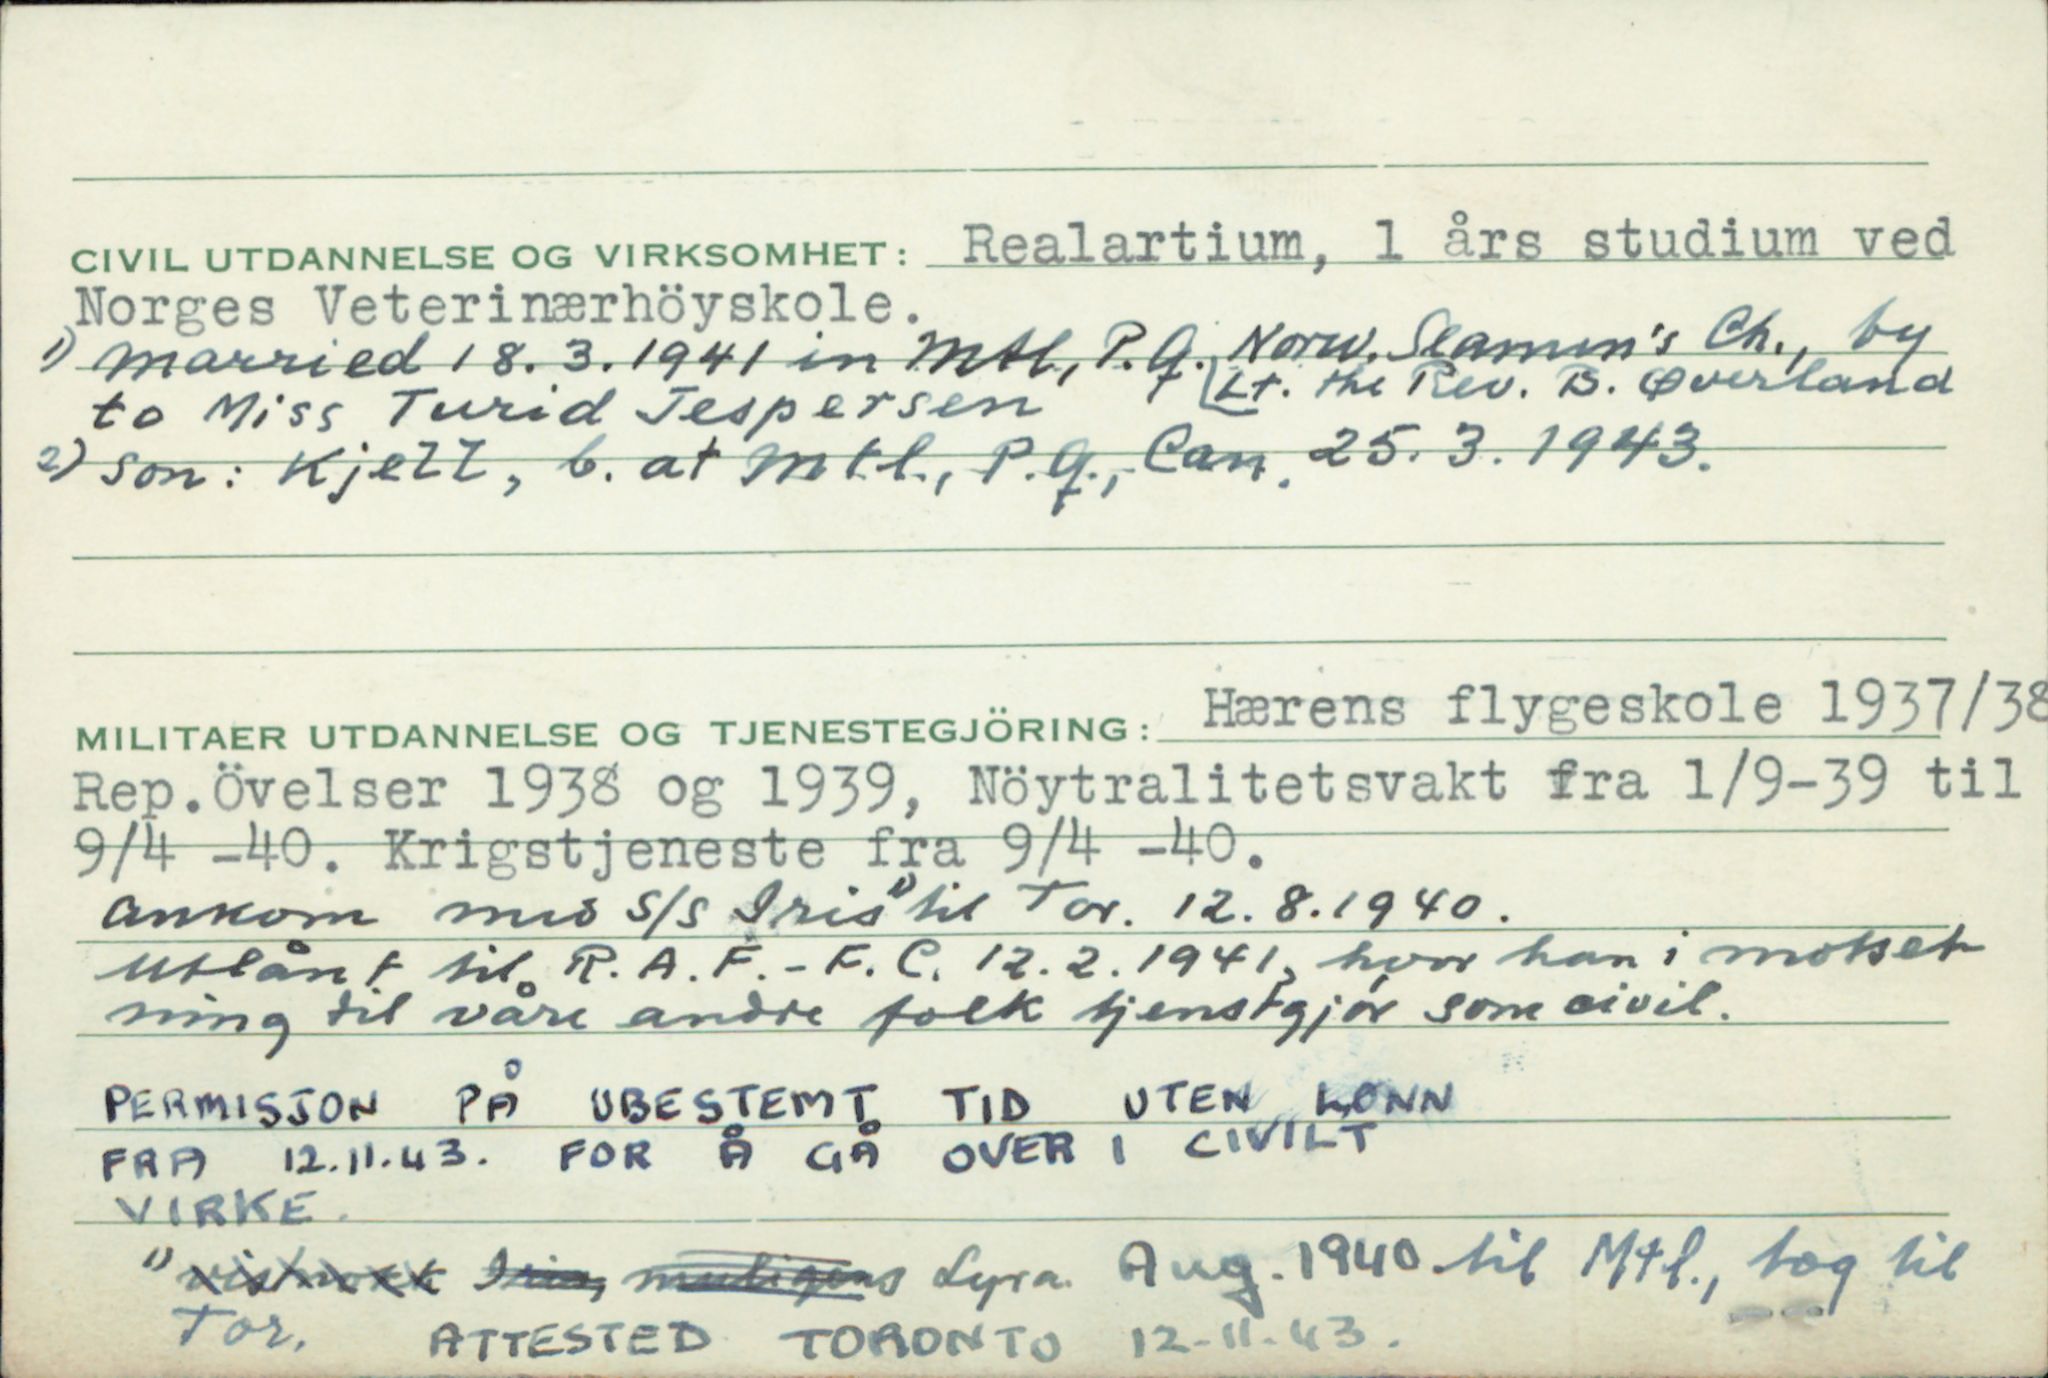 CIVIL UTDANNELSE OG VIRKSOMHET: Realartium, 1 års studium ved
Norges Veterinærhöyskole.
1) married 18.3.1941 in Mtl., P.Q., Norw. Seamen's Ch., by
to Miss Turid Jespersen Lt. the Rev. B. Øverland
2) son: Kjell, b. at Mtl., P.Q., Can. 25.3.1943.
MILITAER UTDANNELSE OG TJENESTEGJÖRING: Hærens flygeskole 1937/38
Rep.Övelser 1938 og 1939, Nöytralitetsvakt fra 1/9-39 til
9/4 -40. Krigstjeneste fra 9/4 -40.
Ankom med S/S Iris 1) til Tor. 12.8.1940.
Utlånt til R.A.F.-F.C. 12.2.1941, hvor han i motset-
ning til våre andre folk tjenstgjør som civil.
PERMISJON PÅ UBESTEMT TID UTEN LØNN
FRA 12.11.43. FOR Å GÅ OVER I CIVILT
VIRKE.
1) Iris, muligens Lyra. Aug. 1940 til Mtl., tog til
Tor. ATTESTED TORONTO 12-11-43.